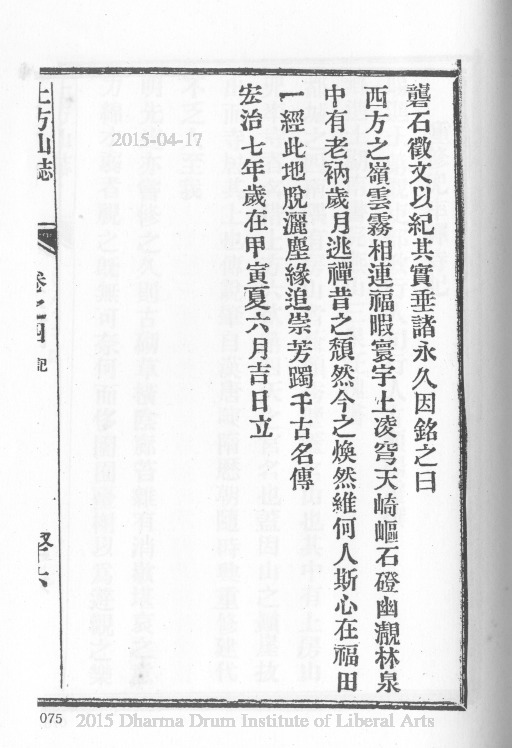 礱石徵文以紀其實垂諸永久因銘之曰
西方之嶺雲霧相連福暇寰宇上凌穹天崎嶇石磴幽瀫林泉
中有老衲歲月逃禪昔之頹然今之煥然維何人斯心在福田
一經此地脫灑塵緣追崇芳躅千古名傳
宏治七年歲在甲寅夏六月吉日立
上方山誌
卷之四
記
2015-04-17
075
2015 Dharma Drum Institute of Liberal Arts